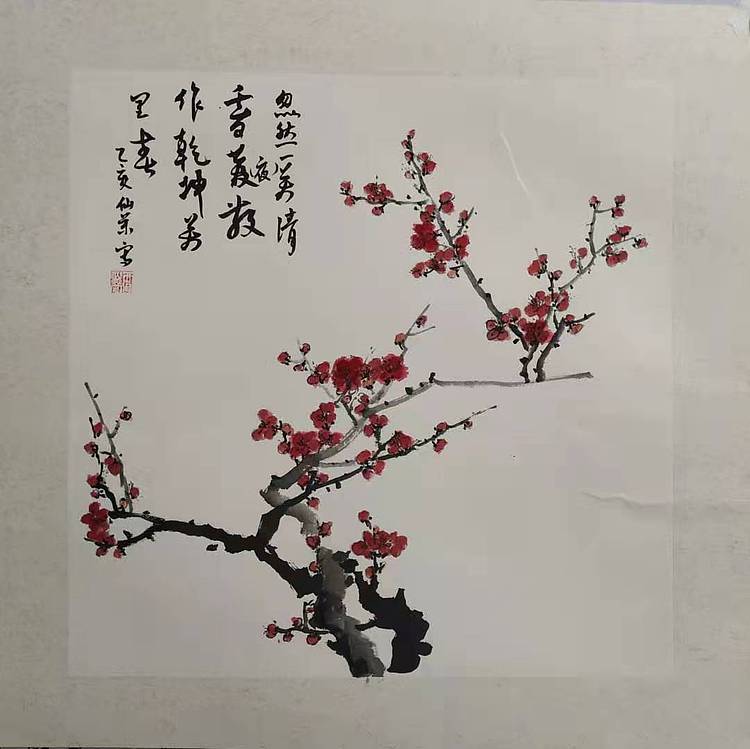 忽然一清
香夜發散
作乾坤万
里春
乙亥仙荣写